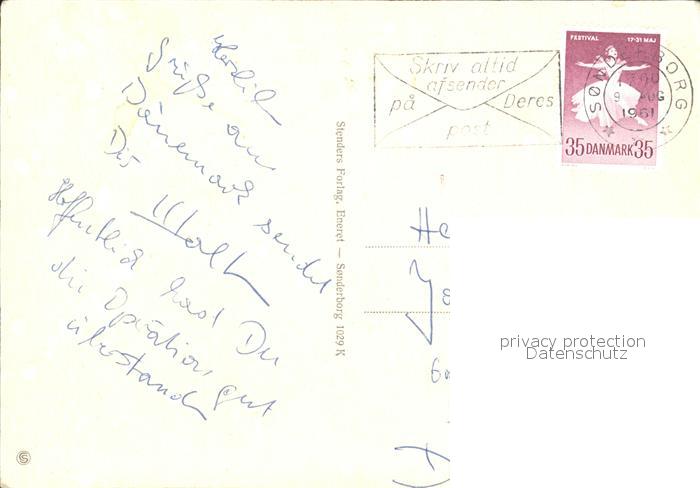 Herzlich
Grüße aus
Dänemark sendet
Dir
Walt
Hoffentlich hast Du
die Operation gut
überstanden
Stenders Forlag, Eneret — Sønderborg 1029 K
Skriv altid
afsender
på Deres
post
FESTIVAL 17-31 MAJ
35 DANMARK 35
SØNDERBORG
9 AUG
1961
He
privacy protection
Datenschutz